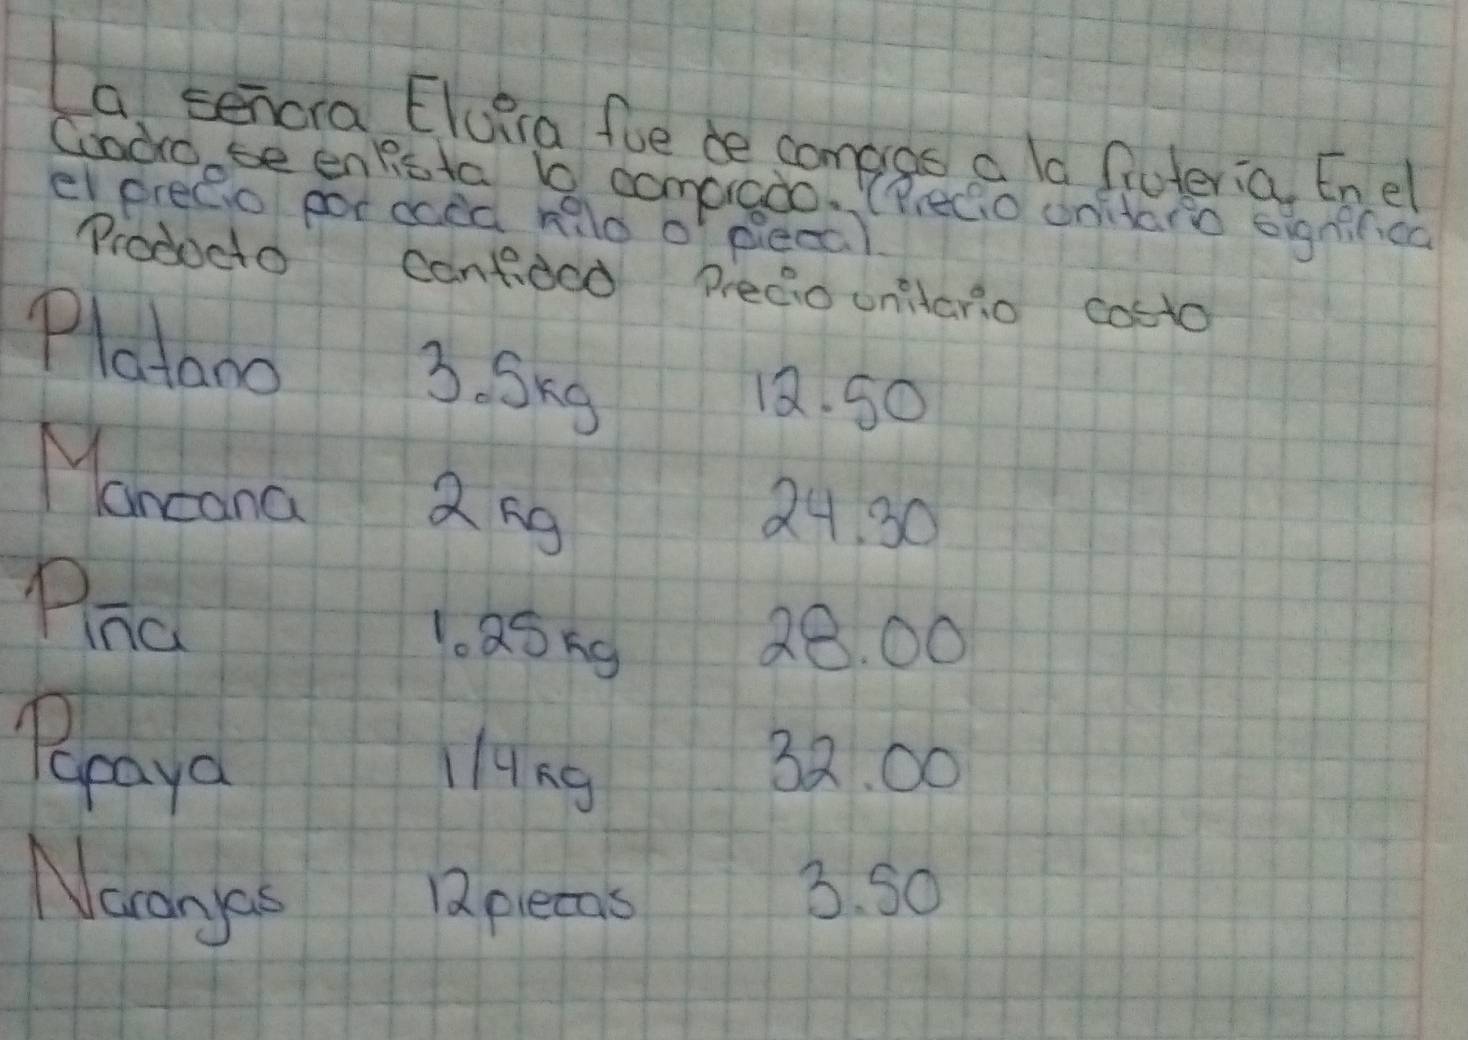 La señora Elvira fue de compras a la fruteria. En el
Cuadro se enlista lo comprado. (Precio unitario significa
el precio por cada kilo o pieza)
Producto cantidad Precio unitario costo
Platano 3.5kg 12.50
Manzana 2 kg 24.30
Piña 1.25 kg 28.00
Papaya 1/4 kg 32.00
Naranjas 12 piezas 3.50